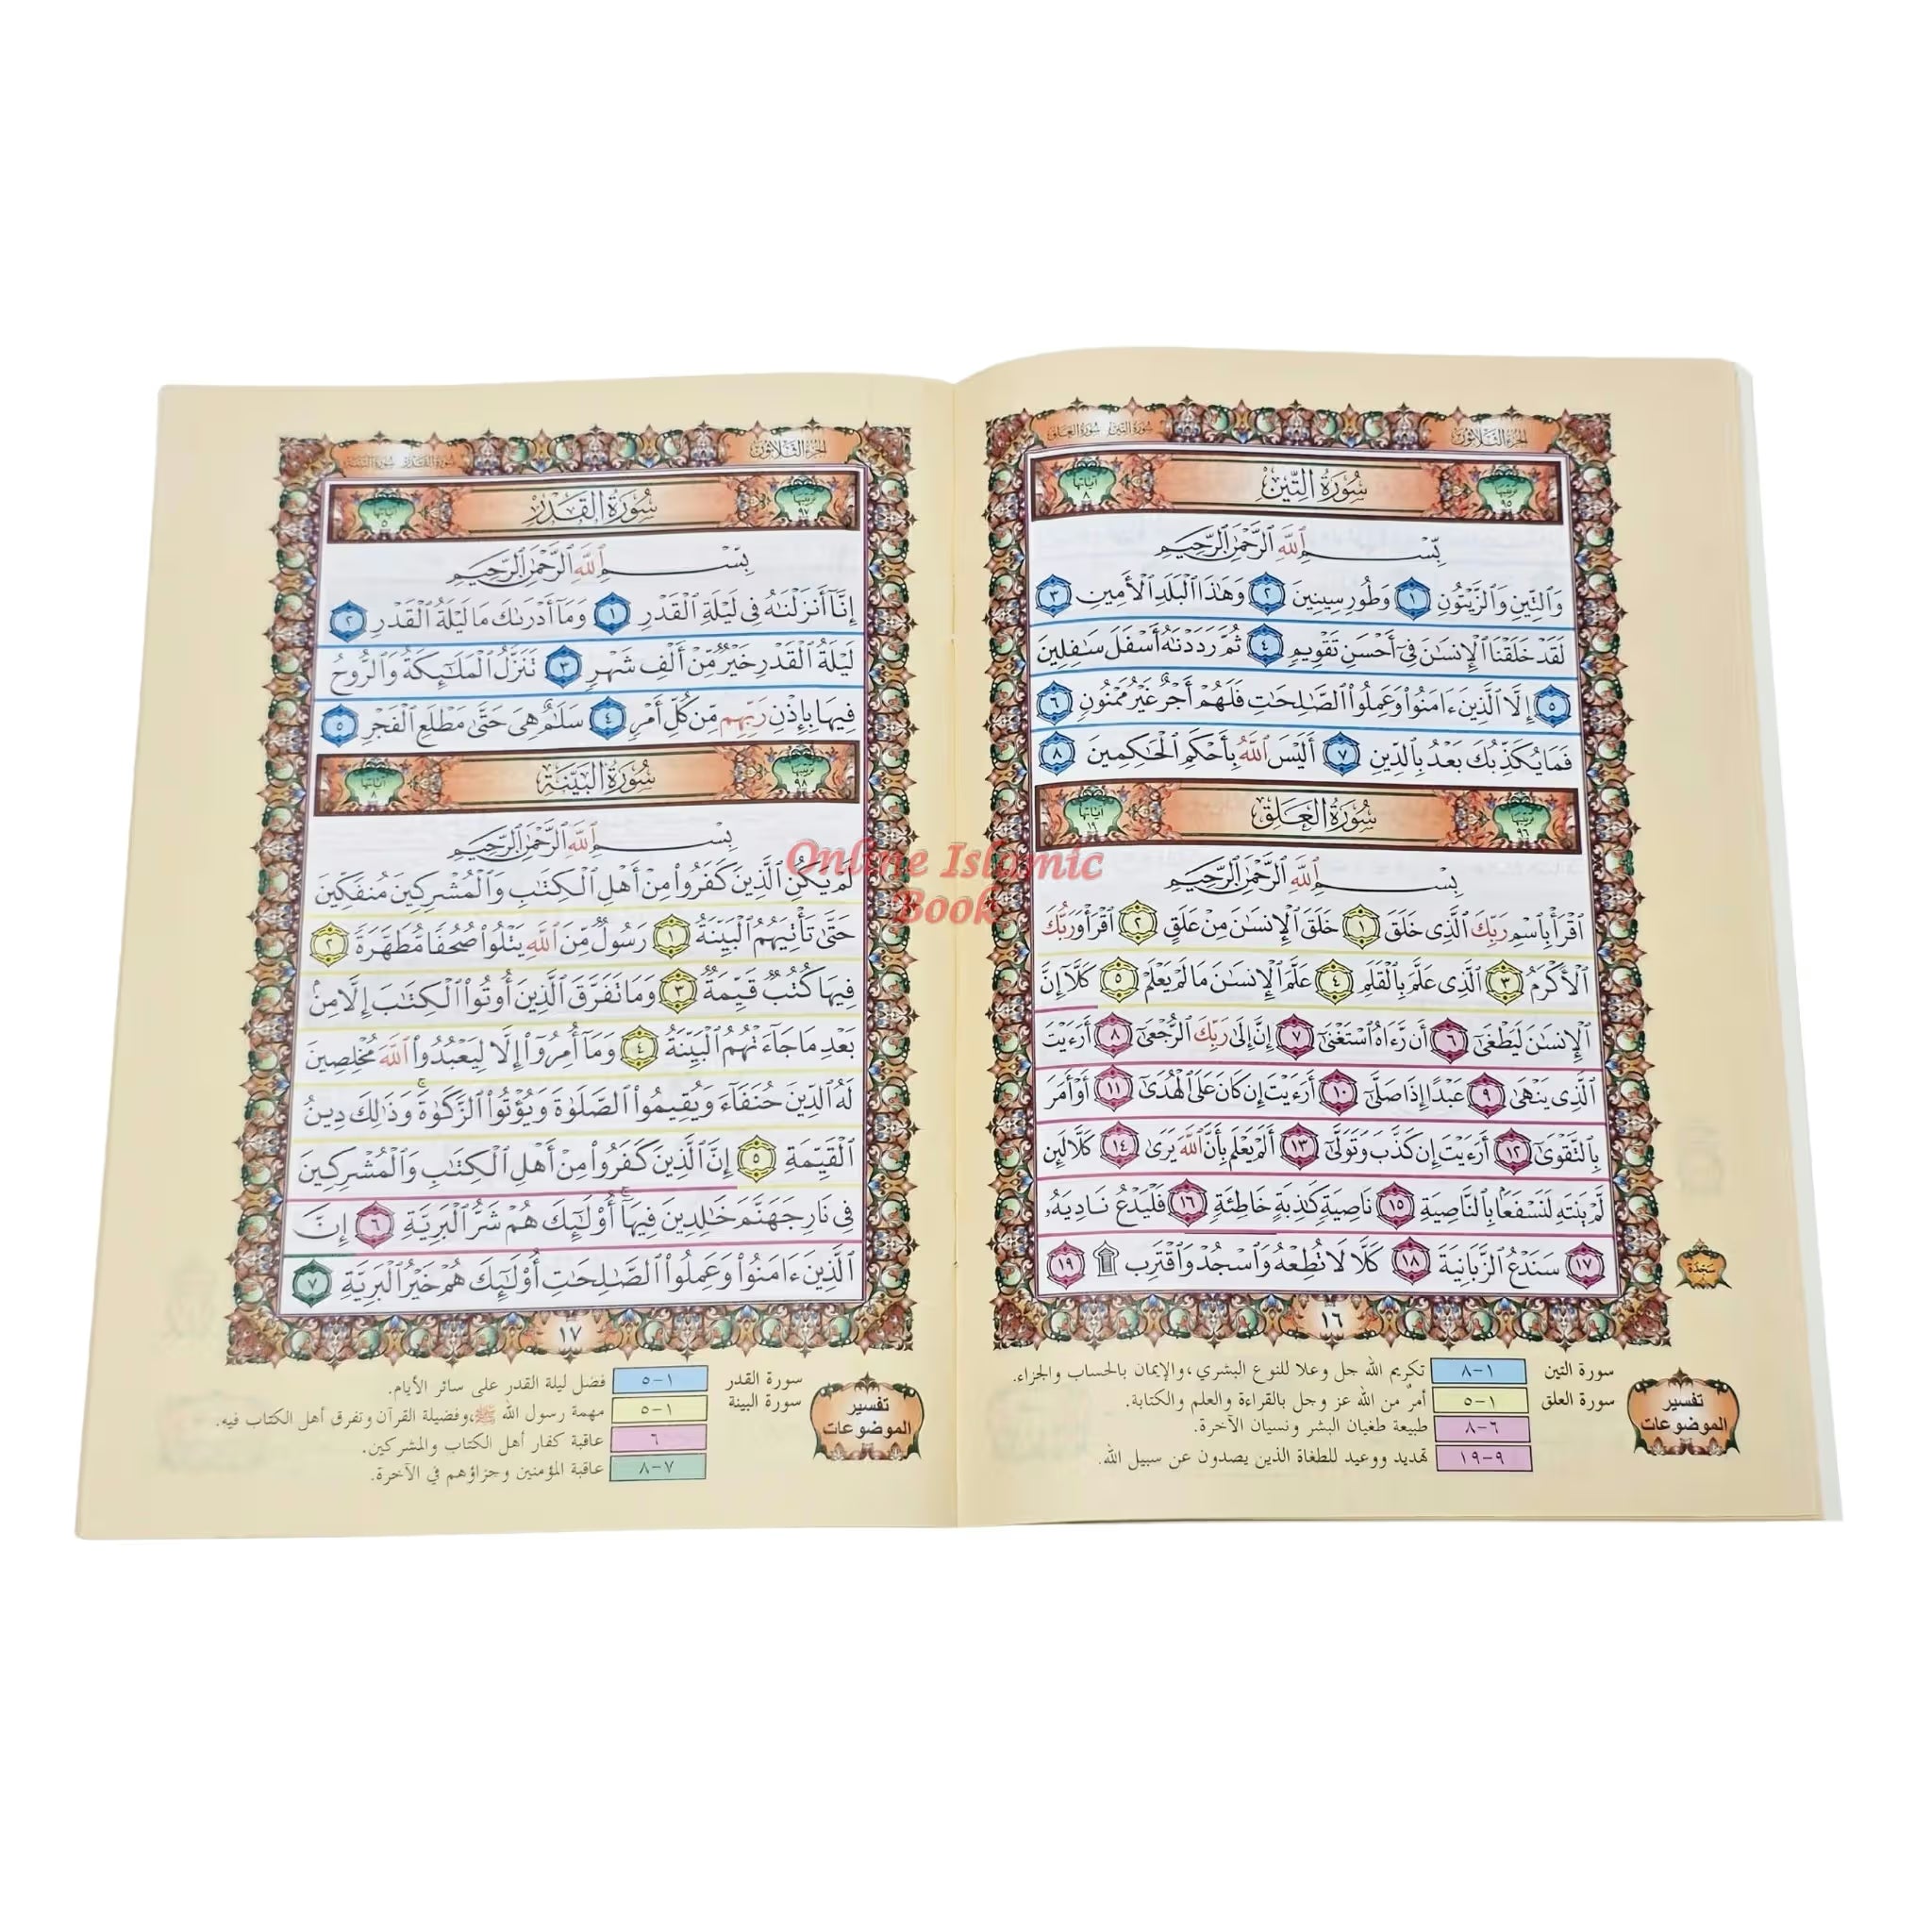 الجزء الثلاثون
سورة التين سورة العلق
ترتيبها ٩٥
سُورَةُ التِّينِ
آياتها ٨
بِسْمِ ٱللَّهِ ٱلرَّحْمَٰنِ ٱلرَّحِيمِ
وَٱلتِّينِ وَٱلزَّيْتُونِ ١ وَطُورِ سِينِينَ ٢ وَهَٰذَا ٱلْبَلَدِ ٱلْأَمِينِ ٣
لَقَدْ خَلَقْنَا ٱلْإِنسَٰنَ فِىٓ أَحْسَنِ تَقْوِيمٍ ٤ ثُمَّ رَدَدْنَٰهُ أَسْفَلَ سَٰفِلِينَ
٥ إِلَّا ٱلَّذِينَ ءَامَنُوا۟ وَعَمِلُوا۟ ٱلصَّٰلِحَٰتِ فَلَهُمْ أَجْرٌ غَيْرُ مَمْنُونٍ ٦
فَمَا يُكَذِّبُكَ بَعْدُ بِٱلدِّينِ ٧ أَلَيْسَ ٱللَّهُ بِأَحْكَمِ ٱلْحَٰكِمِينَ ٨
ترتيبها ٩٦
سُورَةُ العَلَقِ
آياتها ١٩
بِسْمِ ٱللَّهِ ٱلرَّحْمَٰنِ ٱلرَّحِيمِ
ٱقْرَأْ بِٱسْمِ رَبِّكَ ٱلَّذِى خَلَقَ ١ خَلَقَ ٱلْإِنسَٰنَ مِنْ عَلَقٍ ٢ ٱقْرَأْ وَرَبُّكَ
ٱلْأَكْرَمُ ٣ ٱلَّذِى عَلَّمَ بِٱلْقَلَمِ ٤ عَلَّمَ ٱلْإِنسَٰنَ مَا لَمْ يَعْلَمْ ٥ كَلَّآ إِنَّ
ٱلْإِنسَٰنَ لَيَطْغَىٰٓ ٦ أَن رَّءَاهُ ٱسْتَغْنَىٰٓ ٧ إِنَّ إِلَىٰ رَبِّكَ ٱلرُّجْعَىٰٓ ٨ أَرَءَيْتَ
ٱلَّذِى يَنْهَىٰ ٩ عَبْدًا إِذَا صَلَّىٰٓ ١٠ أَرَءَيْتَ إِن كَانَ عَلَى ٱلْهُدَىٰٓ ١١ أَوْ أَمَرَ
بِٱلتَّقْوَىٰٓ ١٢ أَرَءَيْتَ إِن كَذَّبَ وَتَوَلَّىٰٓ ١٣ أَلَمْ يَعْلَم بِأَنَّ ٱللَّهَ يَرَىٰ ١٤ كَلَّا لَئِن
لَّمْ يَنتَهِ لَنَسْفَعًۢا بِٱلنَّاصِيَةِ ١٥ نَاصِيَةٍ كَٰذِبَةٍ خَاطِئَةٍ ١٦ فَلْيَدْعُ نَادِيَهُۥ
١٧ سَنَدْعُ ٱلزَّبَانِيَةَ ١٨ كَلَّا لَا تُطِعْهُ وَٱسْجُدْ وَٱقْتَرِب ۩ ١٩
سجدة
١٦
تفسير الموضوعات
سورة التين ١-٨ تكريم الله جل وعلا للنوع البشري،والإيمان بالحساب والجزاء.
سورة العلق ١-٥ أمرٌ من الله عز وجل بالقراءة والعلم والكتابة.
٦-٨ طبيعة طغيان البشر ونسيان الآخرة.
٩-١٩ تهديد ووعيد للطغاة الذين يصدون عن سبيل الله.
الجزء الثلاثون
سورة القدر سورة البينة
ترتيبها ٩٧
سُورَةُ القَدْرِ
آياتها ٥
بِسْمِ ٱللَّهِ ٱلرَّحْمَٰنِ ٱلرَّحِيمِ
إِنَّآ أَنزَلْنَٰهُ فِى لَيْلَةِ ٱلْقَدْرِ ١ وَمَآ أَدْرَىٰكَ مَا لَيْلَةُ ٱلْقَدْرِ ٢
لَيْلَةُ ٱلْقَدْرِ خَيْرٌ مِّنْ أَلْفِ شَهْرٍ ٣ تَنَزَّلُ ٱلْمَلَٰٓئِكَةُ وَٱلرُّوحُ
فِيهَا بِإِذْنِ رَبِّهِم مِّن كُلِّ أَمْرٍ ٤ سَلَٰمٌ هِىَ حَتَّىٰ مَطْلَعِ ٱلْفَجْرِ ٥
ترتيبها ٩٨
سُورَةُ البَيِّنَةِ
آياتها ٨
بِسْمِ ٱللَّهِ ٱلرَّحْمَٰنِ ٱلرَّحِيمِ
لَمْ يَكُنِ ٱلَّذِينَ كَفَرُوا۟ مِنْ أَهْلِ ٱلْكِتَٰبِ وَٱلْمُشْرِكِينَ مُنفَكِّينَ
حَتَّىٰ تَأْتِيَهُمُ ٱلْبَيِّنَةُ ١ رَسُولٌ مِّنَ ٱللَّهِ يَتْلُوا۟ صُحُفًا مُّطَهَّرَةً ٢
فِيهَا كُتُبٌ قَيِّمَةٌ ٣ وَمَا تَفَرَّقَ ٱلَّذِينَ أُوتُوا۟ ٱلْكِتَٰبَ إِلَّا مِنۢ
بَعْدِ مَا جَآءَتْهُمُ ٱلْبَيِّنَةُ ٤ وَمَآ أُمِرُوٓا۟ إِلَّا لِيَعْبُدُوا۟ ٱللَّهَ مُخْلِصِينَ
لَهُ ٱلدِّينَ حُنَفَآءَ وَيُقِيمُوا۟ ٱلصَّلَوٰةَ وَيُؤْتُوا۟ ٱلزَّكَوٰةَ ۚ وَذَٰلِكَ دِينُ
ٱلْقَيِّمَةِ ٥ إِنَّ ٱلَّذِينَ كَفَرُوا۟ مِنْ أَهْلِ ٱلْكِتَٰبِ وَٱلْمُشْرِكِينَ
فِى نَارِ جَهَنَّمَ خَٰلِدِينَ فِيهَآ ۚ أُو۟لَٰٓئِكَ هُمْ شَرُّ ٱلْبَرِيَّةِ ٦ إِنَّ
ٱلَّذِينَ ءَامَنُوا۟ وَعَمِلُوا۟ ٱلصَّٰلِحَٰتِ أُو۟لَٰٓئِكَ هُمْ خَيْرُ ٱلْبَرِيَّةِ ٧
١٧
تفسير الموضوعات
سورة القدر ١-٥ فضل ليلة القدر على سائر الأيام.
سورة البينة ١-٥ مهمة رسول الله ﷺ،وفضيلة القرآن وتفرق أهل الكتاب فيه.
٦ عاقبة كفار أهل الكتاب والمشركين.
٧-٨ عاقبة المؤمنين وجزاؤهم في الآخرة.
Online Islamic
Book